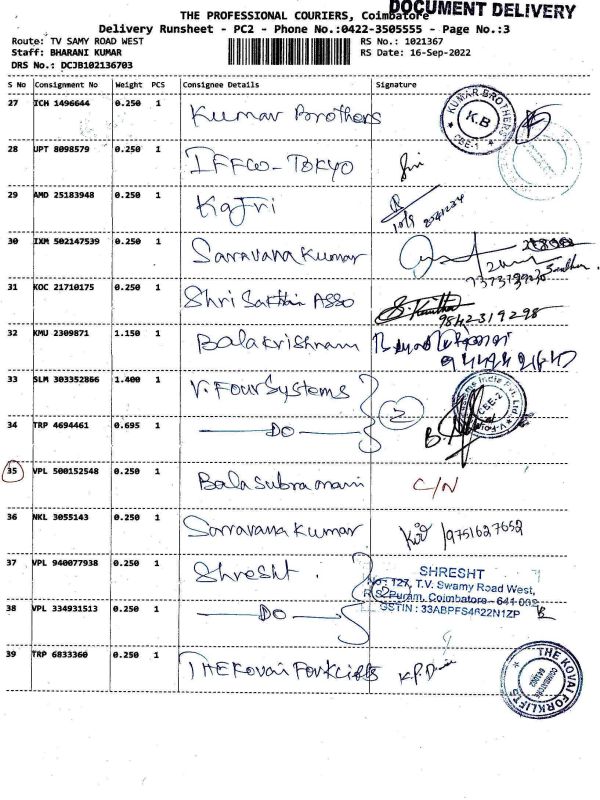 DOCUMENT DELIVERY
THE PROFESSIONAL COURIERS, Coimbatore
Delivery Runsheet - PC2 - Phone No.:0422-3505555 - Page No.:3
Route: TV SAMY ROAD WEST
RS No.: 1021367
Staff: BHARANI KUMAR
RS Date: 16-Sep-2022
DRS No.: DCJB102136703
S No Consignment No Weight PCS Consignee Details Signature
27 ICH 1496644 0.250 1 Kumar Brothers
KUMAR BROTHERS K.B CBE-1
28 UPT 8098579 0.250 1 IFFCO-TOKYO
29 AMD 25183948 0.250 1 Kajri
30 IXM 502147539 0.250 1 Saravana Kumar
31 KOC 21710175 0.250 1 Shri Sakthi Asso
9842319298
32 KMU 2309871 1.150 1 Balakrishnan
33 SLM 303352866 1.400 1 V. Four Systems
2
34 TRP 4694461 0.695 1 DO
CBE-2
35 VPL 500152548 0.250 1 Bala subramani C/N
36 NKL 3055143 0.250 1 Saravana Kumar 9751627652
37 VPL 940077938 0.250 1 Shresht.
SHRESHT
No: 127, T.V. Swamy Road West,
R.S. Puram, Coimbatore - 641 002
GSTIN : 33ABPFS4622N1ZP
38 VPL 334931513 0.250 1 DO
2
39 TRP 6833360 0.250 1 THE Kovai Forklifts K.P.
THE KOVAI FORKLIFTS COIMBATORE 641002